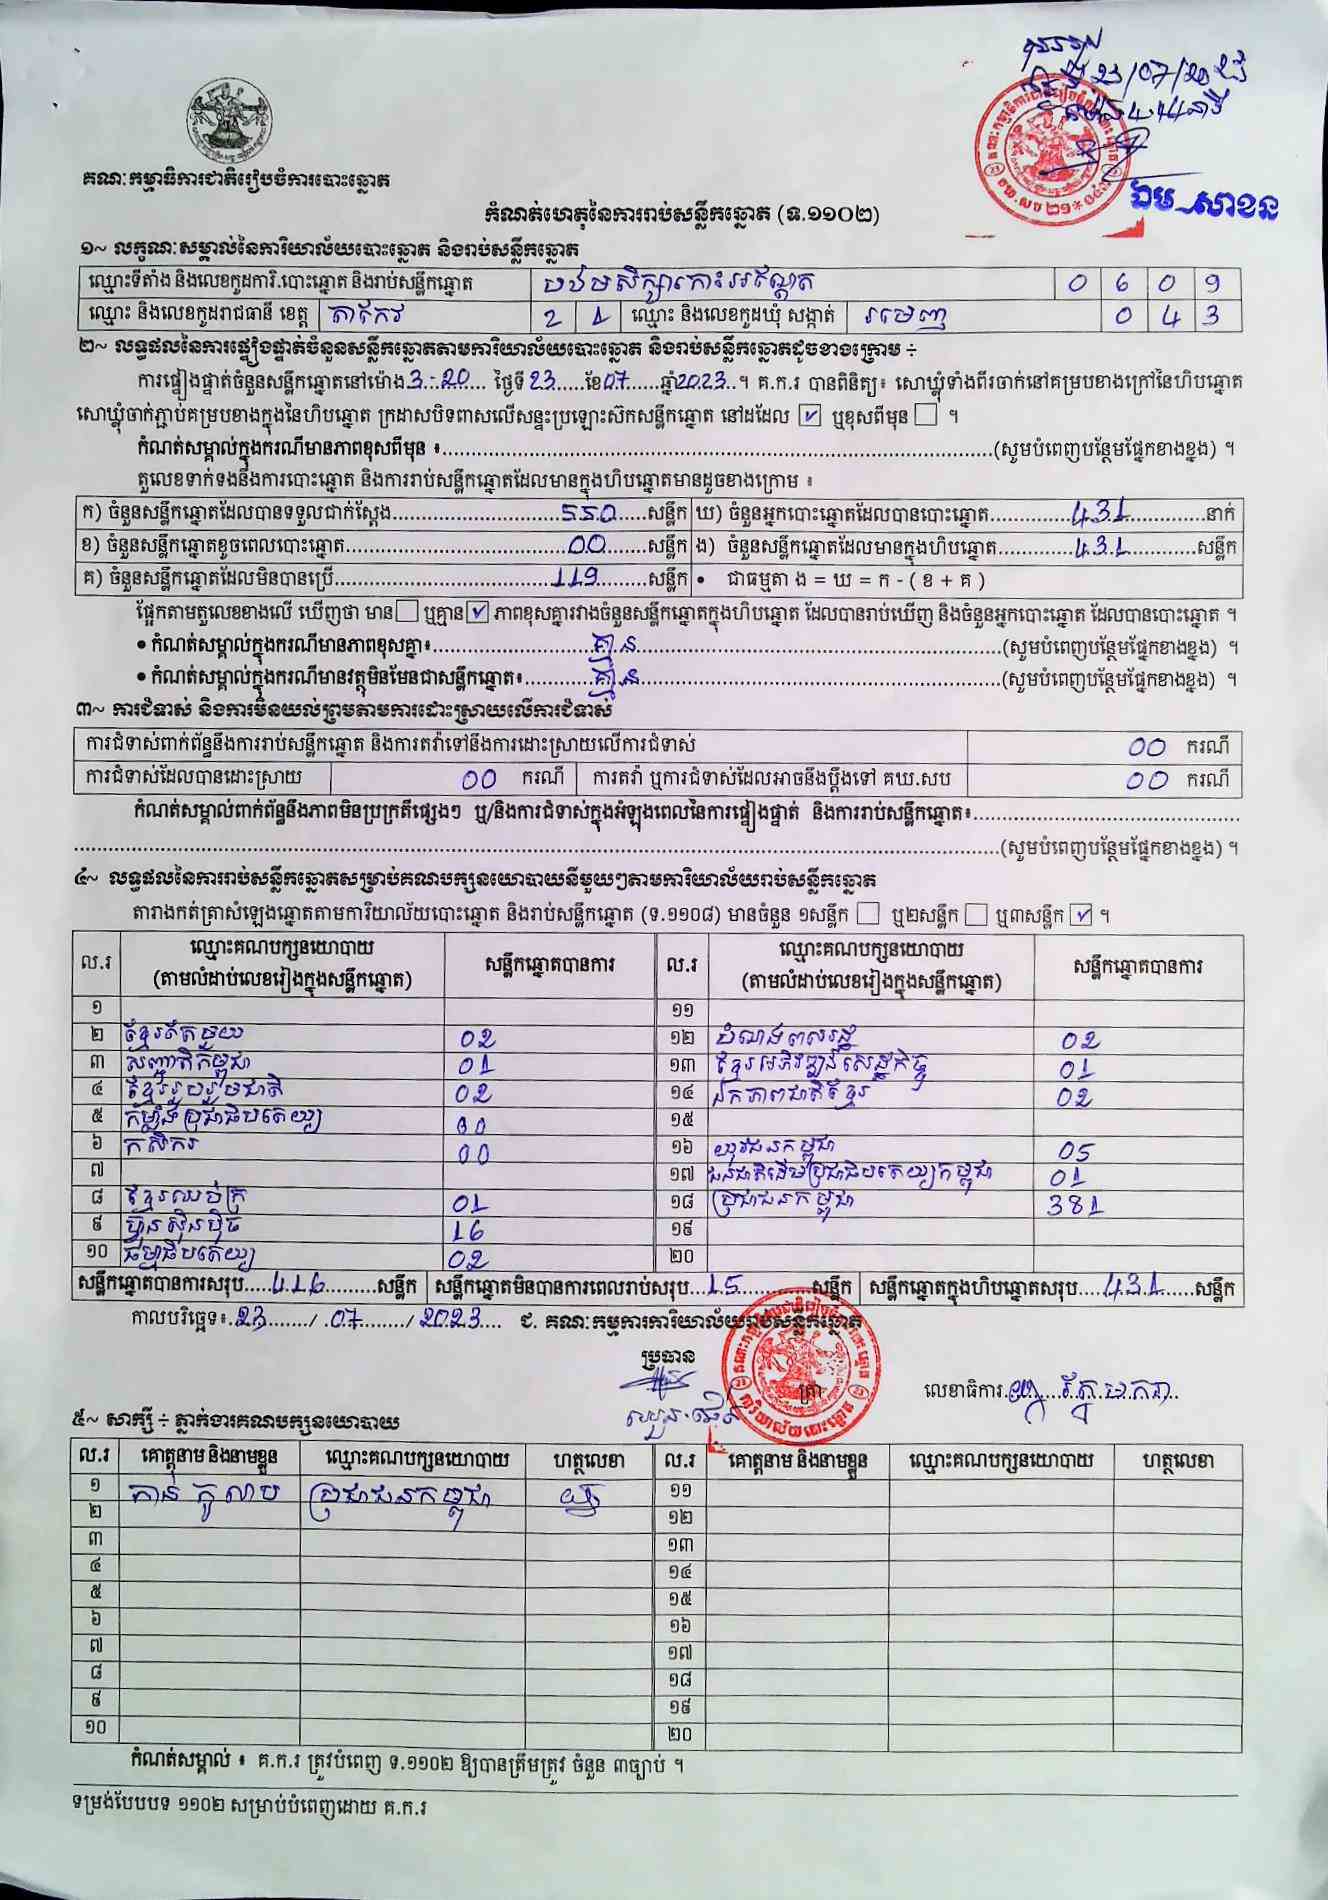 គណៈកម្មាធិការជាតិរៀបចំការបោះឆ្នោត
កំណត់ហេតុនៃការរាប់សន្លឹកឆ្នោត (ទ.១១០២)
ឯម សាខន
១~ លក្ខណៈសម្គាល់នៃការិយាល័យបោះឆ្នោត និងរាប់សន្លឹកឆ្នោត
ឈ្មោះទីតាំង និងលេខកូដការិ.បោះឆ្នោត និងរាប់សន្លឹកឆ្នោត បឋមសិក្សាកោះអណ្តែត 0 6 0 9
ឈ្មោះ និងលេខកូដរាជធានី ខេត្ត តាកែវ 2 1 ឈ្មោះ និងលេខកូដឃុំ សង្កាត់ រមេញ 0 4 3
២~ លទ្ធផលនៃការផ្ទៀងផ្ទាត់ចំនួនសន្លឹកឆ្នោតតាមការិយាល័យបោះឆ្នោត និងរាប់សន្លឹកឆ្នោតដូចខាងក្រោម ៖
ការផ្ទៀងផ្ទាត់ចំនួនសន្លឹកឆ្នោតនៅម៉ោង 3:20 ថ្ងៃទី 23 ខែ 07 ឆ្នាំ 2023 ។ គ.ក.រ បានពិនិត្យ៖ សោឃ្លុំទាំងពីរចាក់នៅគម្របខាងក្រៅនៃហិបឆ្នោត
សោឃ្លុំចាក់ភ្ជាប់គម្របខាងក្នុងនៃហិបឆ្នោត ក្រដាសបិទពាសលើសន្ទះប្រឡោះស៊កសន្លឹកឆ្នោត នៅដដែល ✓ ឬខុសពីមុន ។
កំណត់សម្គាល់ក្នុងករណីមានភាពខុសពីមុន ៖ (សូមបំពេញបន្ថែមផ្នែកខាងខ្នង) ។
តួលេខទាក់ទងនឹងការបោះឆ្នោត និងការរាប់សន្លឹកឆ្នោតដែលមានក្នុងហិបឆ្នោតមានដូចខាងក្រោម ៖
ក) ចំនួនសន្លឹកឆ្នោតដែលបានទទួលជាក់ស្តែង 550 សន្លឹក ឃ) ចំនួនអ្នកបោះឆ្នោតដែលបានបោះឆ្នោត 431 នាក់
ខ) ចំនួនសន្លឹកឆ្នោតខូចពេលបោះឆ្នោត 00 សន្លឹក ង) ចំនួនសន្លឹកឆ្នោតដែលមានក្នុងហិបឆ្នោត 431 សន្លឹក
គ) ចំនួនសន្លឹកឆ្នោតដែលមិនបានប្រើ 119 សន្លឹក • ជាធម្មតា ង = ឃ = ក - ( ខ + គ )
ផ្អែកតាមតួលេខខាងលើ ឃើញថា មាន ឬគ្មាន ✓ ភាពខុសគ្នារវាងចំនួនសន្លឹកឆ្នោតក្នុងហិបឆ្នោត ដែលបានរាប់ឃើញ និងចំនួនអ្នកបោះឆ្នោត ដែលបានបោះឆ្នោត ។
• កំណត់សម្គាល់ក្នុងករណីមានភាពខុសគ្នា៖ គ្មាន (សូមបំពេញបន្ថែមផ្នែកខាងខ្នង) ។
• កំណត់សម្គាល់ក្នុងករណីមានវត្ថុមិនមែនជាសន្លឹកឆ្នោត៖ គ្មាន (សូមបំពេញបន្ថែមផ្នែកខាងខ្នង) ។
៣~ ការជំទាស់ និងការមិនយល់ព្រមតាមការដោះស្រាយលើការជំទាស់
ការជំទាស់ពាក់ព័ន្ធនឹងការរាប់សន្លឹកឆ្នោត និងការតវ៉ាទៅនឹងការដោះស្រាយលើការជំទាស់ 00 ករណី
ការជំទាស់ដែលបានដោះស្រាយ 00 ករណី ការតវ៉ា ឬការជំទាស់ដែលអាចនឹងប្តឹងទៅ គឃ.សប 00 ករណី
កំណត់សម្គាល់ពាក់ព័ន្ធនឹងភាពមិនប្រក្រតីផ្សេងៗ ឬ/និងការជំទាស់ក្នុងអំឡុងពេលនៃការផ្ទៀងផ្ទាត់ និងការរាប់សន្លឹកឆ្នោត៖
(សូមបំពេញបន្ថែមផ្នែកខាងខ្នង) ។
៤~ លទ្ធផលនៃការរាប់សន្លឹកឆ្នោតសម្រាប់គណបក្សនយោបាយនីមួយៗតាមការិយាល័យរាប់សន្លឹកឆ្នោត
តារាងកត់ត្រាសំឡេងឆ្នោតតាមការិយាល័យបោះឆ្នោត និងរាប់សន្លឹកឆ្នោត (ទ.១១០៨) មានចំនួន ១សន្លឹក ឬ២សន្លឹក ឬ៣សន្លឹក ✓ ។
ល.រ ឈ្មោះគណបក្សនយោបាយ (តាមលំដាប់លេខរៀងក្នុងសន្លឹកឆ្នោត) សន្លឹកឆ្នោតបានការ ល.រ ឈ្មោះគណបក្សនយោបាយ (តាមលំដាប់លេខរៀងក្នុងសន្លឹកឆ្នោត) សន្លឹកឆ្នោតបានការ
១ ១១
២ ខ្មែរតែមួយ 02 ១២ បំណងពលរដ្ឋ 02
៣ សញ្ជាតិកម្ពុជា 01 ១៣ ខ្មែរអភិវឌ្ឍន៍សេដ្ឋកិច្ច 01
៤ ខ្មែររួបរួមជាតិ 02 ១៤ ឯកភាពជាតិខ្មែរ 02
៥ កម្លាំងប្រជាធិបតេយ្យ 00 ១៥
៦ កសិករ 00 ១៦ យុវជនកម្ពុជា 05
៧ ១៧ ជនជាតិដើមប្រជាធិបតេយ្យកម្ពុជា 01
៨ ខ្មែរឈប់ក្រ 01 ១៨ ប្រជាជនកម្ពុជា 381
៩ ហ៊្វុនស៊ិនប៉ិច 16 ១៩
១០ ធម្មាធិបតេយ្យ 02 ២០
សន្លឹកឆ្នោតបានការសរុប 416 សន្លឹក សន្លឹកឆ្នោតមិនបានការពេលរាប់សរុប 15 សន្លឹក សន្លឹកឆ្នោតក្នុងហិបឆ្នោតសរុប 431 សន្លឹក
កាលបរិច្ឆេទ៖ 23 / 07 / 2023 ជ. គណៈកម្មការការិយាល័យរាប់សន្លឹកឆ្នោត
ប្រធាន
ត្រា លេខាធិការ
៥~ សាក្សី ៖ ភ្នាក់ងារគណបក្សនយោបាយ
ល.រ គោត្តនាម និងនាមខ្លួន ឈ្មោះគណបក្សនយោបាយ ហត្ថលេខា ល.រ គោត្តនាម និងនាមខ្លួន ឈ្មោះគណបក្សនយោបាយ ហត្ថលេខា
១ កាន់ កូឡាប ប្រជាជនកម្ពុជា ១១
២ ១២
៣ ១៣
៤ ១៤
៥ ១៥
៦ ១៦
៧ ១៧
៨ ១៨
៩ ១៩
១០ ២០
កំណត់សម្គាល់ ៖ គ.ក.រ ត្រូវបំពេញ ទ.១១០២ ឱ្យបានត្រឹមត្រូវ ចំនួន ៣ច្បាប់ ។
ទម្រង់បែបបទ ១១០២ សម្រាប់បំពេញដោយ គ.ក.រ